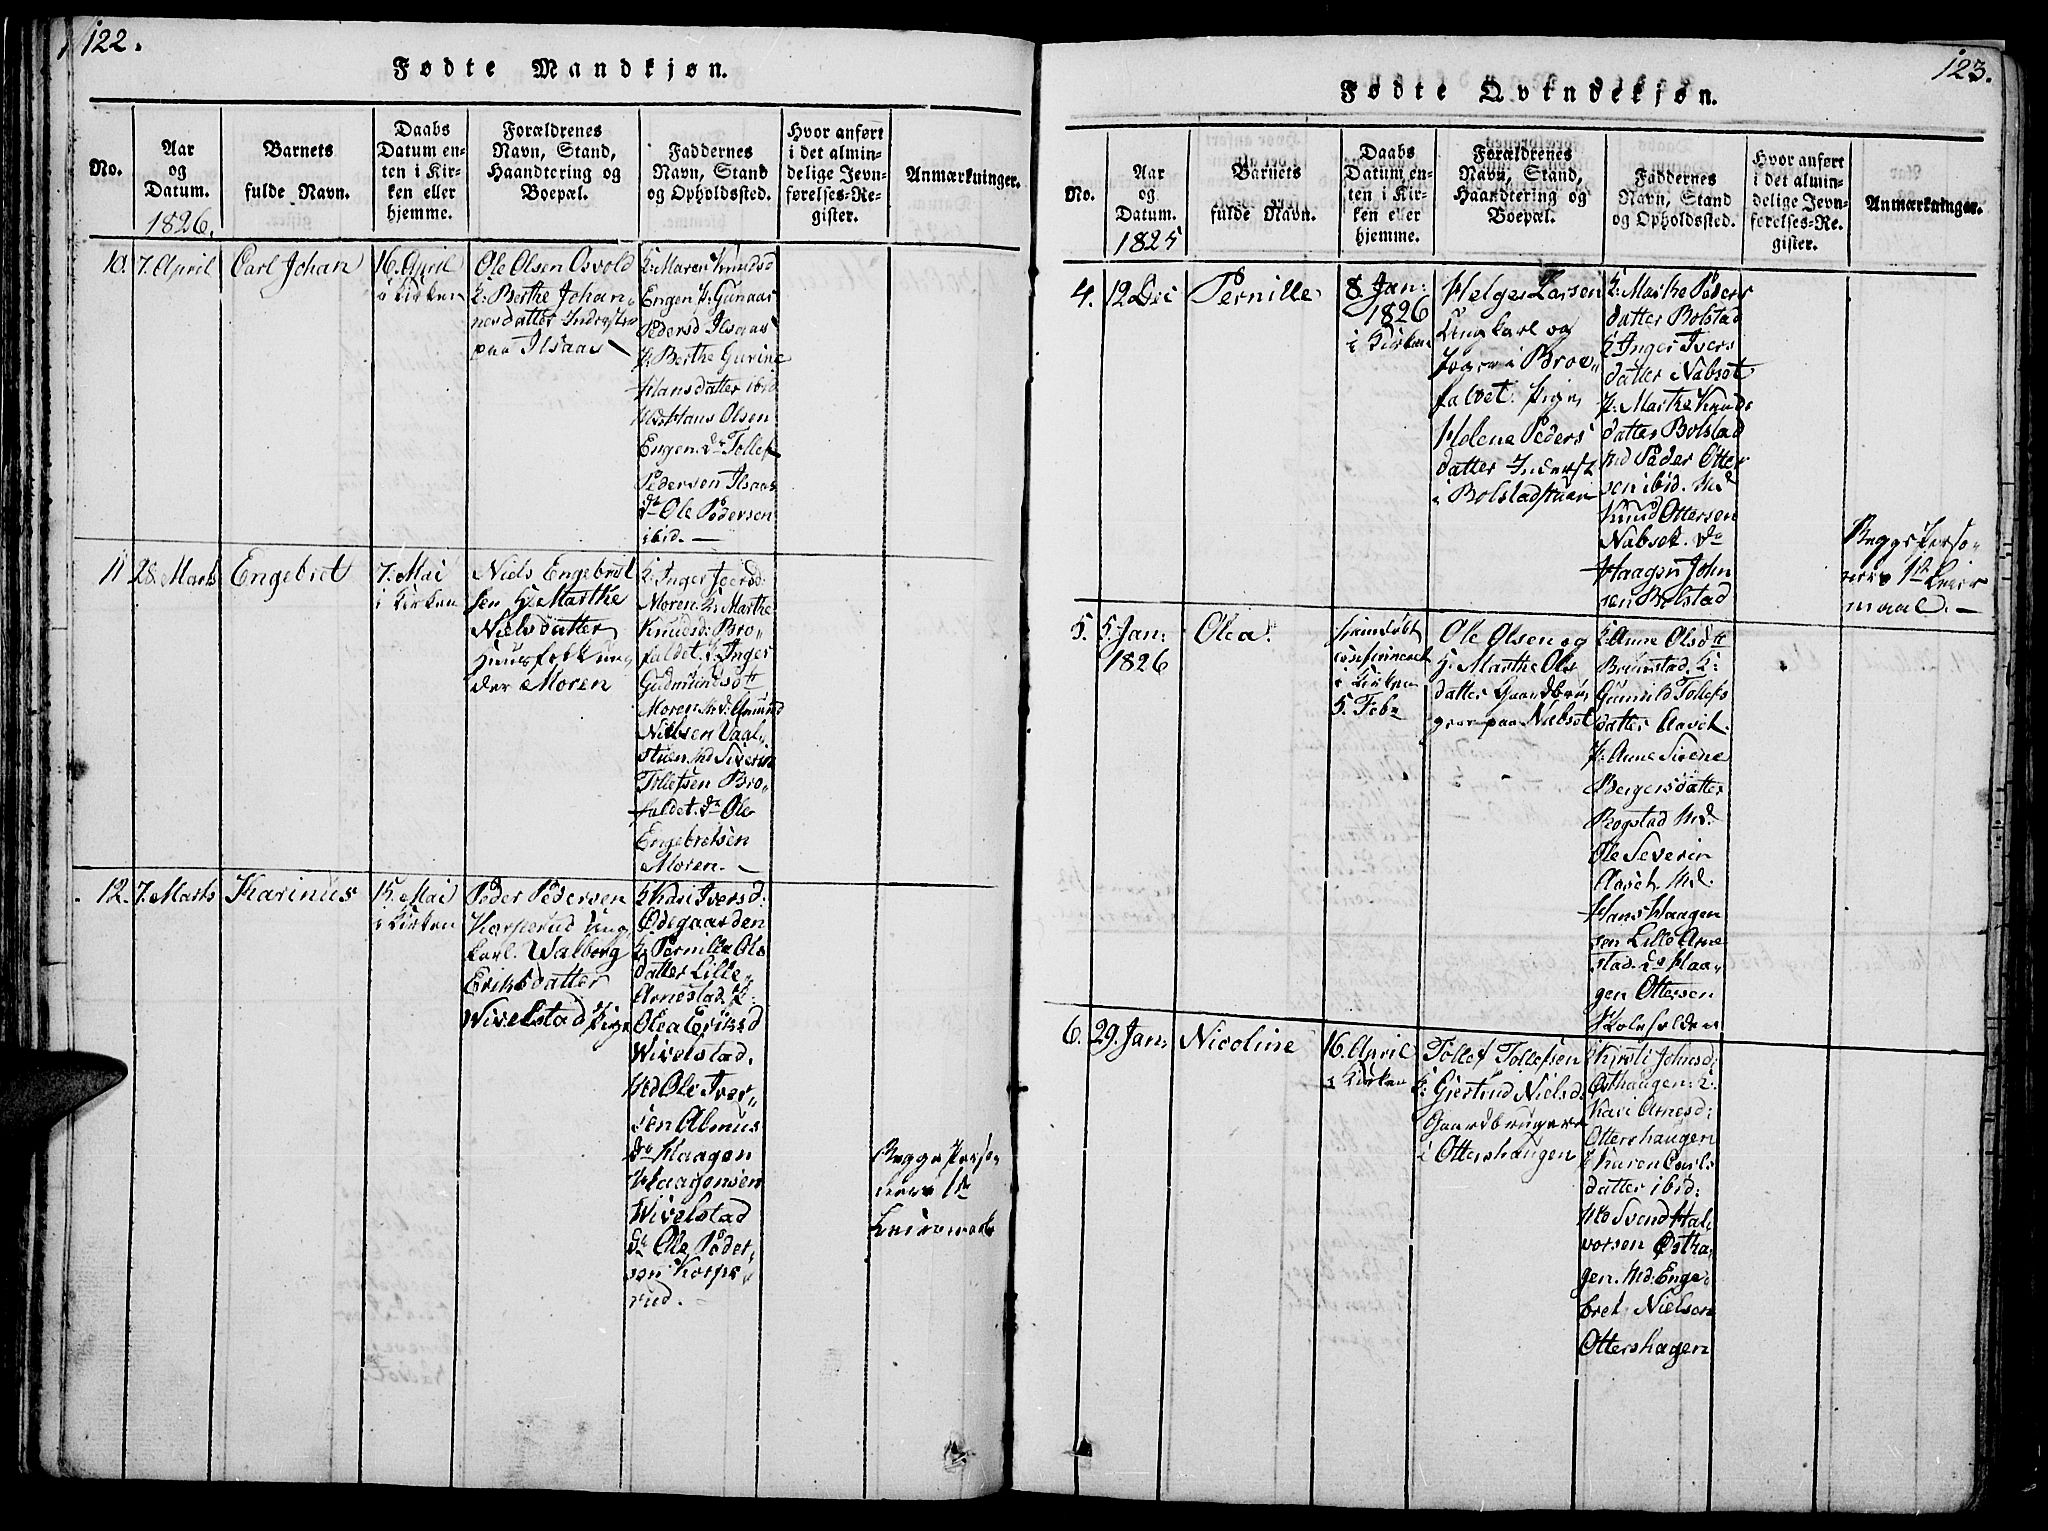 122.
Fødte Mandkjøn.
No.
Aar
og
Datum.
1826.
Barnets
fulde Navn.
Daabs
Datum en-
ten i Kir-
ken eller
hjemme.
Forældrenes
Navn, Stand,
Haandtering og
Boepæl.
Faddernes
Navn, Stand
og Opholdssted.
Hvor anført
i det almin-
delige Jevn-
førelses-Re-
gister.
Anmærkninger.
10.
7. April
Carl Johan
16. April
i Kirken
Ole Olsen Osvold
K: Berthe Johan-
nesdatter Inderster
paa Ilsaas
K: Maren Knudsd
Engen P: Gunaar
Pedersd Ilsaas
P: Berthe Gurine
Hansdatter ibid
Hans Olsen
Engen. do Tollef
Pedersen Ilsaas
do Ole Pedersen
ibid. —
11
28. Marts
Engebret
7. Mai
i Kirken
Niels Engebret
sen H: Marthe
Nielsdatter
Huusfolk un,
der Moren
K: Inger Iversd:
Moren. K: Marthe
Knudsd: Bro-
faldet. P: Inger
Gudmundsdtt
Moren. Amund
Nielsen Vaal-
stuen. Md Siverin
Tollefsen Bro-
faldet. do Ole
Engebretsen
Moren. —
12.
7. Marts
Karinus
15. Mai
i Kirken
Peder Pedersen
Korperud Ung,
karl. Walborg
Eriksdatter
Wivelstad Pige
K Kari Iversd:
Ødegaarden
K: Pernille Ols
datter Lille-
Arnestad. P:
Olea Eriksd
Wivelstad.
Md Ole Iver-
sen Almus
do Haagen
Haagensen
Wivelstad
do Ole Peder-
sen Korpe-
rud. —
Begge Perso-
ners 1te
Leiermaal
123.
Fødte Qvindekjøn.
No.
Aar
og
Datum.
1825
Barnets
fulde Navn.
Daabs
Datum en-
ten i Kir-
ken eller
hjemme.
Forældrenes
Navn, Stand,
Haandtering og
Boepæl.
Faddernes
Navn, Stand
og Opholdssted.
Hvor anført
i det almin-
delige Jevn-
førelses-Re-
gister.
Anmærkninger.
4.
12 Dec
Pernille
8. Jan:
1826
i Kirken
Helge Larsen
Ungkarl og
i Broe-
falvet. Pige
Helene Peders
datter Inderst
i Bolstadstuen
K: Marthe Peders
datter Bolstad
K Inger Ivers
datter Nabset
P: Marthe Knuds
datter Bolstad
Md Peder Otter
sen ibid. Md
Knud Ottersen
Nabset. do
Haagen John
sen Bolstad
Begge Perso-
ners 1te Leier
maal. —
5.
5. Jan:
1826
Olea.
hjemmedøbt
i Kirken
5. Febr
Ole Olsen og
H: Marthe Ols
datter Gaardbru
gere paa Nabset
K: Anne Olsdtt
Brunstad. K:
Gunild Tollefs
datter Aaset.
P: Anne Sirene
Bergersdatter
Bogstad Md.
Ole Severin
Aaset. Md.
Hans Haagen
sen Lille Arne
stad. do Haa-
gen Ottersen
Kolefelden
6.
29. Jan:
Nicoline
16. April
i Kirken
Tollef Tollefsen
K: Giertrud Nielsd.
Gaardbrugere
i Ottershaugen
K Kirsti Johnsd:
Østhaugen: K:
Kari Arnesd:
Ottershaugen
P: Karen Carls
datter ibid:
Md Svend Hal,
vorsen Østha,
gen. Md: Enge-
bret Nielsen
Ottershagen